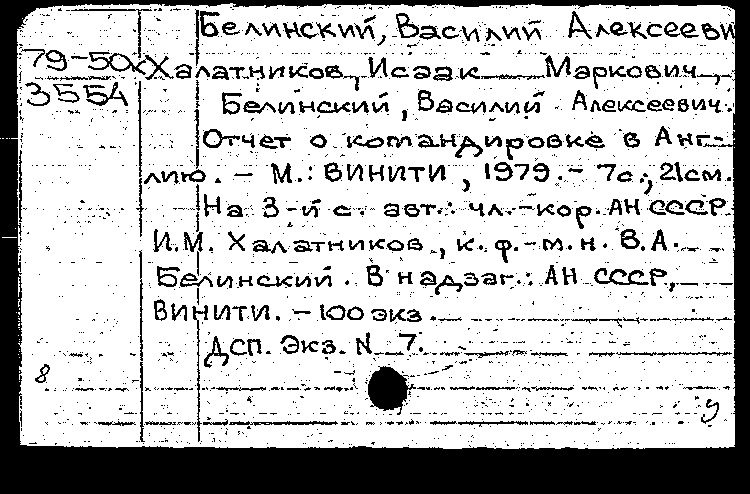 Белинский, Василий Алексееви
79-50к
Халатников, Исаак Маркович,
3554
Белинский, Василий Алексеевич.
Отчет о командировке в Анг-
лию. - М.: ВИНИТИ, 1979. - 7с.; 21см.
На 3-й с. авт.: чл.-кор. АН СССР
И.М. Халатников, к. ф.-м. н. В.А.
Белинский. В надзаг.: АН СССР,
ВИНИТИ. - 100 экз.
ДСП. Экз. N 7.
8